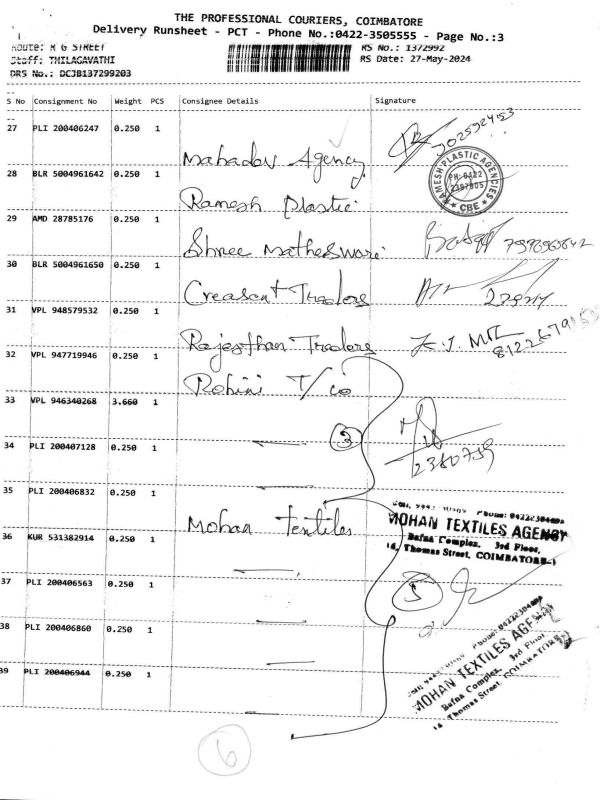 THE PROFESSIONAL COURIERS, COIMBATORE
Delivery Runsheet - PCT - Phone No.:0422-3505555 - Page No.:3
Route: R G STREET
RS No.: 1372992
Staff: THILAGAVATHI
RS Date: 27-May-2024
DRS No.: DCJB137299203
S No Consignment No Weight PCS Consignee Details Signature
27 PLI 200406247 0.250 1 Mahadav Agency
28 BLR 5004961642 0.250 1 Ramesh Plastic
RAMESH PLASTIC AGENCIES
PH:0422
2397805
CBE
29 AMD 28785176 0.250 1 Shree Matheswari
30 BLR 5004961650 0.250 1 Creascent Traders
31 VPL 948579532 0.250 1 Rajesthan Traders
32 VPL 947719946 0.250 1 Rohini T/co
33 VPL 946340268 3.660 1
3
2380739
34 PLI 200407128 0.250 1
35 PLI 200406832 0.250 1 Mohan Textiles
MOHAN TEXTILES AGENCY
Bafna Complex, 3rd Floor,
16, Thomas Street, COIMBATORE-1
36 KUR 531382914 0.250 1
37 PLI 200406563 0.250 1
5
38 PLI 200406860 0.250 1
MOHAN TEXTILES AGENCY
Bafna Complex, 3rd Floor
16, Thomas Street, COIMBATORE
39 PLI 200406944 0.250 1
6